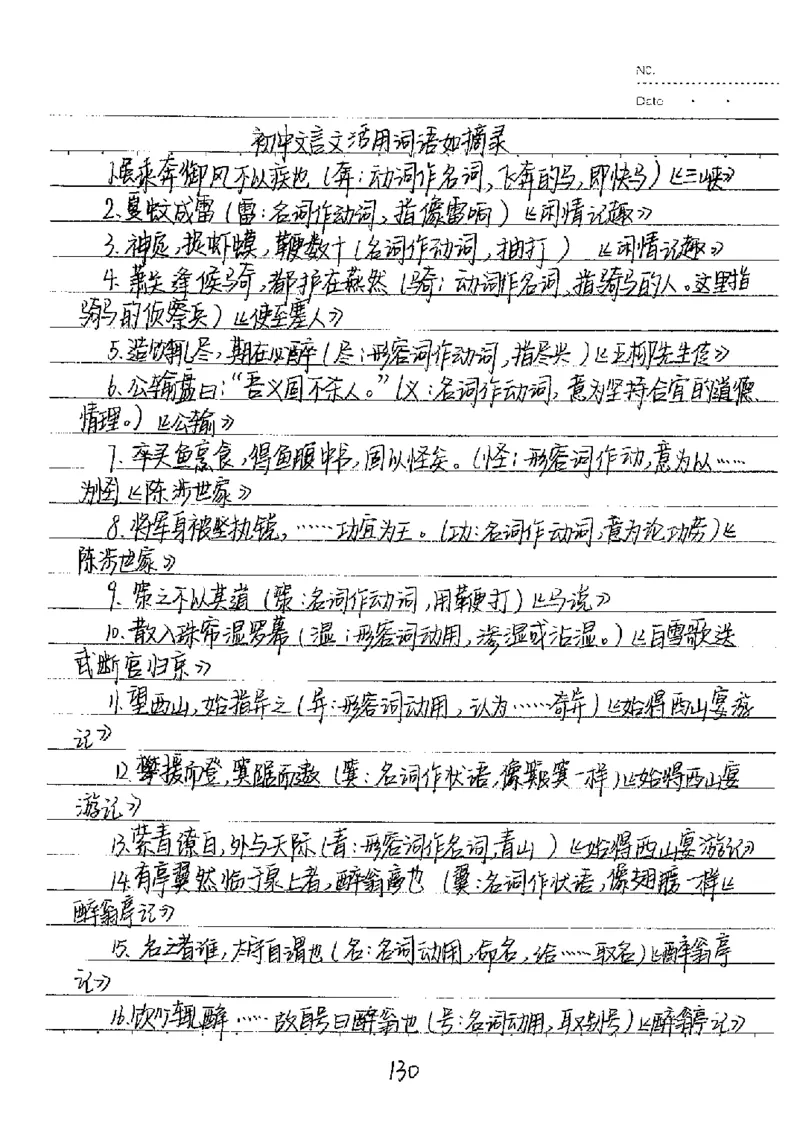 NO.
Date
初中文言文活用词语如摘录
1.虽乘奔御风不以疾也(奔:动词作名词,飞奔的马,即快马)《三峡》
2.夏蚊成雷(雷:名词作动词,指像雷响)《闲情记趣》
3.神定,捉虾蟆,鞭数十(名词作动词,抽打)《闲情记趣》
4.萧关逢候骑,都护在燕然(骑:动词作名词,指骑马的人。这里指
骑马的侦察兵)《使至塞上》
5.造饮辄尽,期在必醉(尽:形容词作动词,指尽兴)《五柳先生传》
6.公输盘曰:“吾义固不杀人。”(义:名词作动词,意为坚持合宜的道德、
情理。)《公输》
7.卒买鱼烹食,得鱼腹中书,固以怪矣。(怪:形容词作动,意为以……
为怪)《陈涉世家》
8.将军身被坚执锐,……功宜为王。(功:名词作动词,意为论功劳)《
陈涉世家》
9.策之不以其道(策:名词作动词,用鞭打)《马说》
10.散入珠帘湿罗幕(湿:形容词动用,渗湿或沾湿。)《白雪歌送
武断官归京》
11.望西山,始指异之(异:形容词动用,认为……奇异)《始得西山宴游
记》
12.攀援而登,箕踞而遨(箕:名词作状语,像簸箕一样)《始得西山宴
游记》
13.萦青缭白,外与天际(青:形容词作名词,青山)《始得西山宴游记》
14.有亭翼然临于泉上者,醉翁亭也(翼:名词作状语,像翅膀一样《
醉翁亭记》
15.名之者谁,太守自谓也(名:名词动用,命名,给……取名)《醉翁亭
记》
16.饮少辄醉……故自号曰醉翁也(号:名词动用,取别号)《醉翁亭记》
130